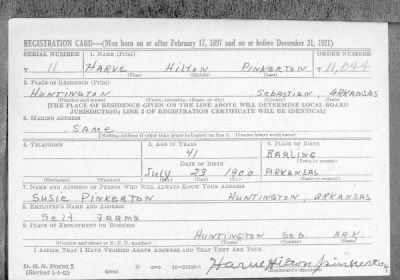 REGISTRATION CARD—(Men born on or after February 17, 1897 and on or before December 31, 1921)
SERIAL NUMBER 1. NAME (Print) ORDER NUMBER
T 11 HARVE HILTON PINKERTON T 11,044
(First) (Middle) (Last)
2. PLACE OF RESIDENCE (Print)
HUNTINGTON SEBASTIAN, ARKANSAS
(Number and street) (Town, township, village, or city) (County) (State)
[THE PLACE OF RESIDENCE GIVEN ON THE LINE ABOVE WILL DETERMINE LOCAL BOARD
JURISDICTION; LINE 2 OF REGISTRATION CERTIFICATE WILL BE IDENTICAL]
3. MAILING ADDRESS
SAME
[Mailing address if other than place indicated on line 2. If same insert word same]
4. TELEPHONE 5. AGE IN YEARS 6. PLACE OF BIRTH
41 BARLING
DATE OF BIRTH (Town or county)
July 23 1900 ARKANSAS
(Exchange) (Number) (Mo.) (Day) (Yr.) (State or country)
7. NAME AND ADDRESS OF PERSON WHO WILL ALWAYS KNOW YOUR ADDRESS
SUSIE PINKERTON HUNTINGTON, ARKANSAS
8. EMPLOYER'S NAME AND ADDRESS
Self FARMS
9. PLACE OF EMPLOYMENT OR BUSINESS
HUNTINGTON Seb. ARK.
(Number and street or R. F. D. number) (Town) (County) (State)
I AFFIRM THAT I HAVE VERIFIED ABOVE ANSWERS AND THAT THEY ARE TRUE.
D. S. S. Form 1
(Revised 1-1-42) (over) GPO Harve Hilton Pinkerton
(Registrant's signature)